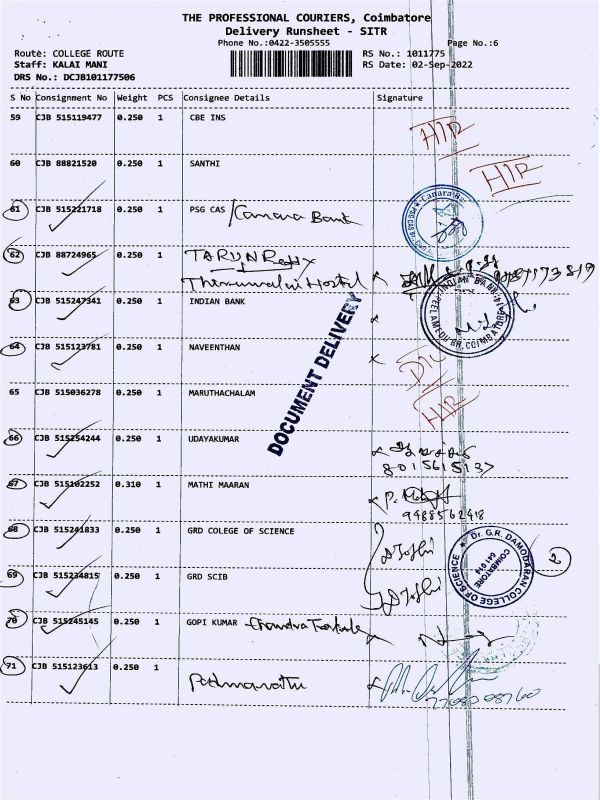 THE PROFESSIONAL COURIERS, Coimbatore
Delivery Runsheet - SITR
Phone No.:0422-3505555
Page No.:6
Route: COLLEGE ROUTE
RS No.: 1011775
Staff: KALAI MANI
RS Date: 02-Sep-2022
DRS No.: DCJB101177506
S No Consignment No Weight PCS Consignee Details Signature
59 CJB 515119477 0.250 1 CBE INS
H/R
60 CJB 88821520 0.250 1 SANTHI
H/R
61 CJB 515221718 0.250 1 PSG CAS / Canara Bank
62 CJB 88724965 0.250 1 TARUN
Hostel
63 CJB 515247341 0.250 1 INDIAN BANK
INDIAN BANK
PEELAMEDU BR, COIMBATORE
DOCUMENT DELIVERY
64 CJB 515123781 0.250 1 NAVEENTHAN
65 CJB 515036278 0.250 1 MARUTHACHALAM
H/R
66 CJB 515254244 0.250 1 UDAYAKUMAR
8015615137
67 CJB 515102252 0.310 1 MATHI MAARAN
9488562418
68 CJB 515241833 0.250 1 GRD COLEGE OF SCIENCE
Dr. G.R. DAMODARAN COLLEGE OF SCIENCE
COIMBATORE
641 014
2
69 CJB 515234815 0.250 1 GRD SCIB
70 CJB 515245145 0.250 1 GOPI KUMAR Chandra
71 CJB 515123613 0.250 1